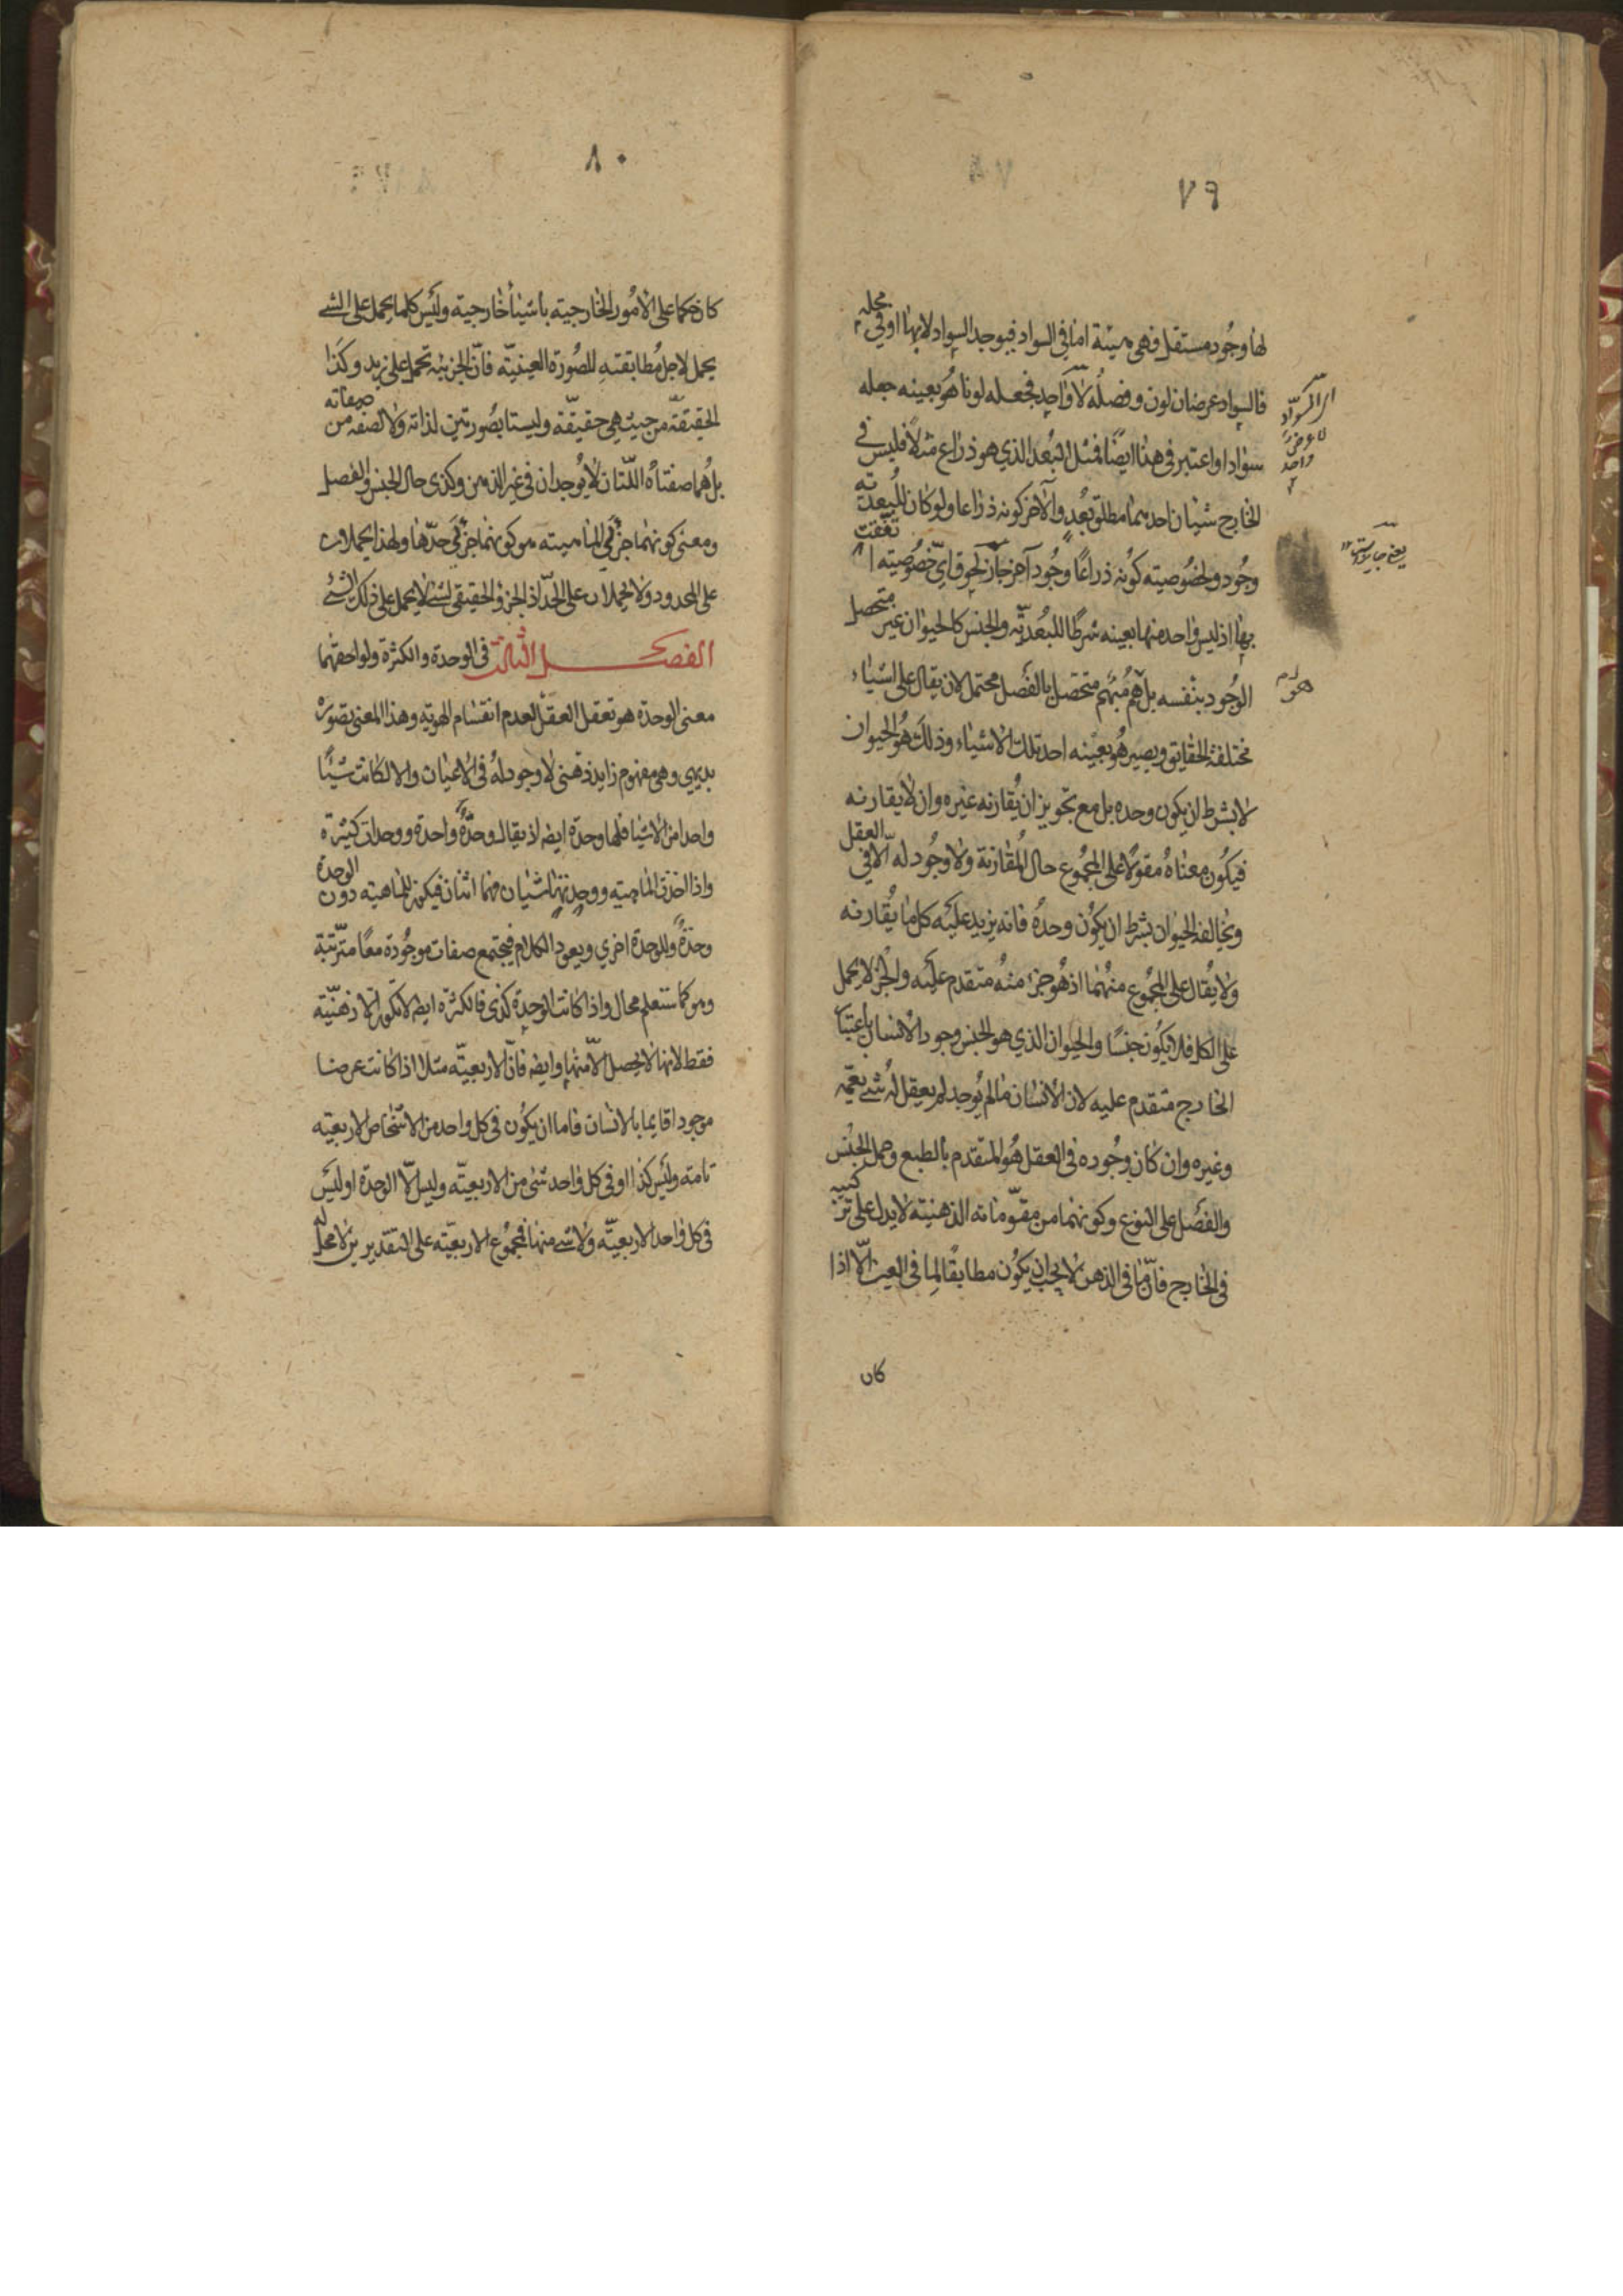 ٧٩
لها وجود مستقل فهي هيئة اما في السواد فيوجد السواد لا بها او في محله
فالسواد عرضان لون وفصله لا واحد فجعله لونا هو بعينه جعله
سوادا واعتبر في هذا ايضا فمثل البعد الذي هو ذراع مثلا فليس في
الخارج شيئان احدهما مطلق بعد والآخر كونه ذراعا ولو كان للبعدية
وجود ولخصوصيته كونه ذراعا وجود آخر جاز لحوق اي خصوصيته اتفقت
بها اذ ليس واحد منها بعينه شرطا للبعدية والجنس كالحيوان غير متحصل
الوجود بنفسه بل هو مبهم متحصل بالفصل محتمل لان يقال على اشياء
مختلفة الحقايق ويصير هو بعينه احد تلك الاشياء وذلك هو الحيوان
لا بشرط ان يكون وحده بل مع تجويز ان يقارنه غيره وان لا يقارنه
فيكون معناه مقولا على المجموع حال المقارنة ولا وجود له الا في العقل
ويخالفه الحيوان بشرط ان يكون وحده فانه يزيد عليه كل ما يقارنه
ولا يقال على المجموع منهما اذ هو جزء منه متقدم عليه والجزء لا يحمل
على الكل فلا يكون جنسا والحيوان الذي هو الجنس وجود الانسان باعتبار
الخارج متقدم عليه لان الانسان ما لم يوجد لم يعقل له شئ يعمه
وغيره وان كان وجوده في العقل هو المتقدم بالطبع وحمل الجنس
والفصل على النوع وكونهما من مقوماته الذهنية لا يدل على تركيبه
في الخارج فان ما في الذهن لا يجب ان يكون مطابقا لما في العين الا اذا
كان
السواد
لا عرض
واحد
هو
يعني
٨٠
كان حكما على الامور الخارجية باشياء خارجية وليس كلما يحمل على الشئ
يحمل لاجل مطابقته للصورة العينية فان الجزئية تحمل على زيد وكذا
الحقيقة من حيث هي حقيقة وليستا بصورتين لذاته ولا لصفة من صفاته
بل هما صفتاه اللتان لا يوجدان في غير الذهن وكذى حال الجنس والفصل
ومعنى كونهما جزئي الماهيته هو كونهما جزئي حدها ولهذا يحملان
على المحدود ولا يحملان على الحد اذ الجزو الحقيقي لشئ لا يحمل على ذلك الشئ
الفصل الثالث في الوحدة والكثرة ولواحقهما
معنى الوحدة هو تعقل العقل لعدم انقسام الهوية وهذا المعنى تصوره
بديهي وهي مفهوم زايد ذهني لا وجود له في الاعيان والا لكانت شيئا
واحدا من الاشياء فلها وحدة ايضه اذ يقال وحدة واحدة ووحدات كثيرة
واذا اخذت الماهية ووحدتها شيئان فهما اثنان فيكون للماهيته دون الوحدة
وحدة وللوحدة اخري ويعود الكلام فيجتمع صفات موجودة معا مترتبة
وهو كما ستعلم محال واذا كانت الوحدة كذى فالكثرة ايضه لا تكون الا ذهنية
فقط لانها لا يحصل الا منها وايضه فان الاربعية مثلا اذا كانت عرضا
موجودا قايما بالانسان فاما ان يكون في كل واحد من الاشخاص الاربعيته
تامته وليس كذا او في كل واحد شئ من الاربعية وليس الا الوحدة او ليس
في كل واحد الاربعية ولا شئ منها فمجموع الاربعيته على التقديرين لا محل له